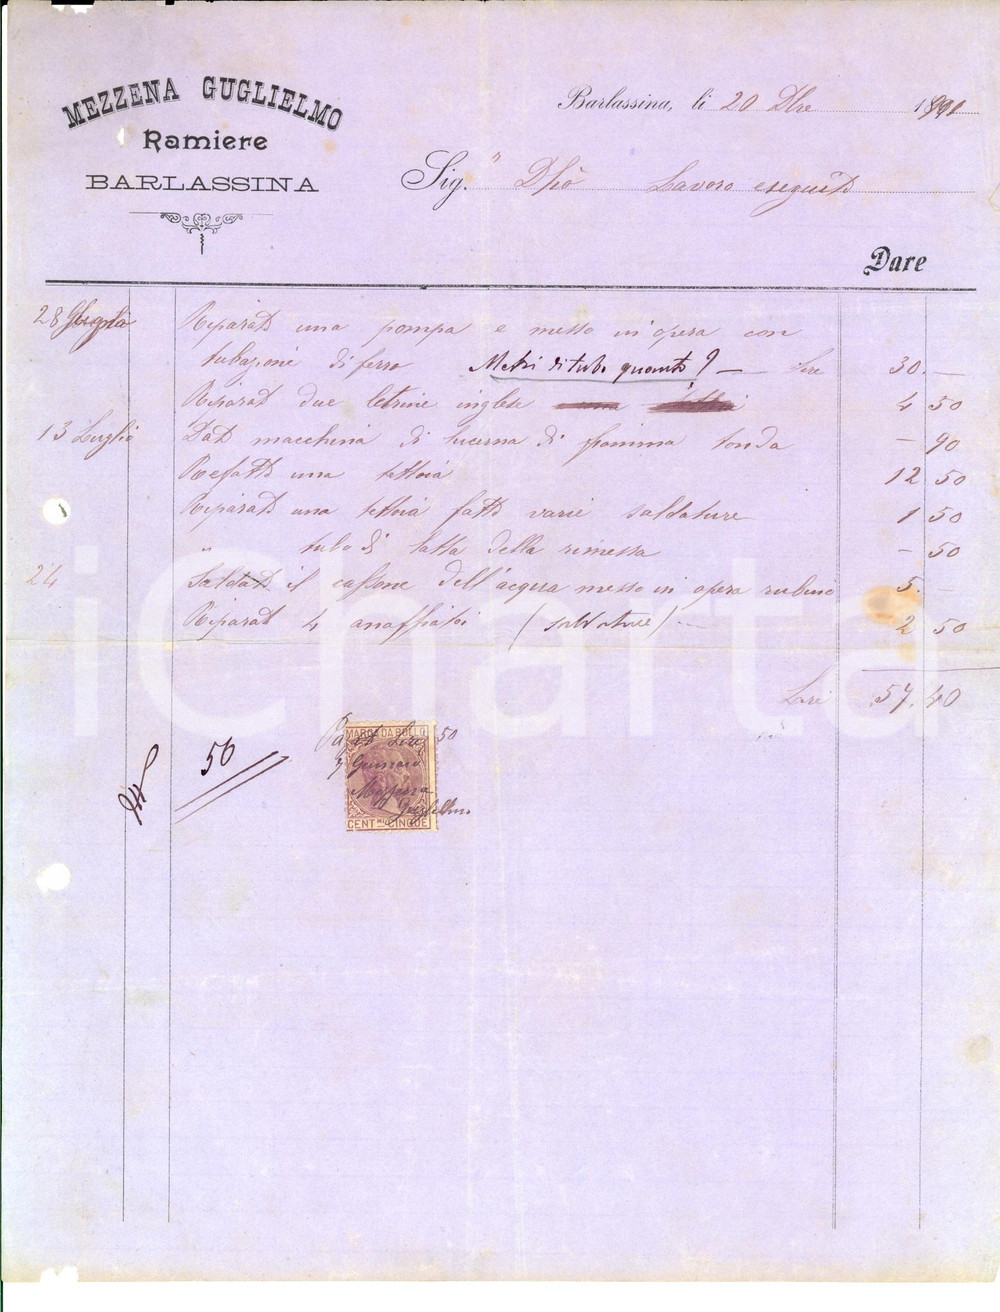 MEZZENA GUGLIELMO
Ramiere
BARLASSINA
Barlassina, li 20 Dbre 1890
Sig. Dhò Lavoro eseguito
Dare
28 Riparato una pompa e messo in opera con
tubazione di ferro Metri di tubo quanto? — Lire 30. —
Riparato due letrine inglese 4 50
13 Luglio Dato macchina di lucerna di fiamma tonda — 90
Refatto una tettoia 12 50
Riparato una tettoia fatto varie saldature 1 50
" tubo di latta della rimessa — 50
24 Saldato il cassone dell'acqua messo in opera rubino 5. —
Riparato 4 anaffiatoi (saldature) — 2 50
Lire 57.40
50
MARCA DA BOLLO
Pagato Lire 50
7 Gennaio
Mezzena
Guglielmo
CENT.MI CINQUE
iCharta